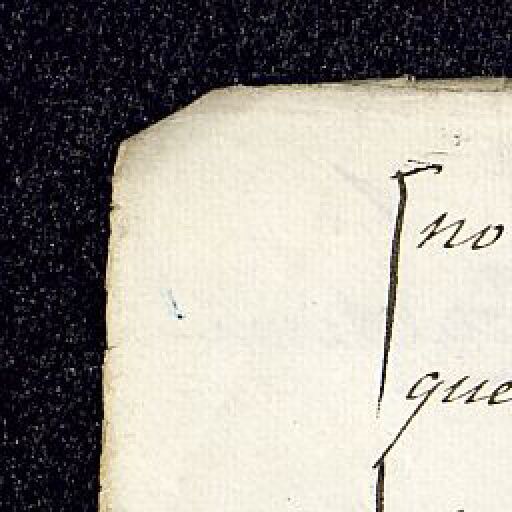 no
que